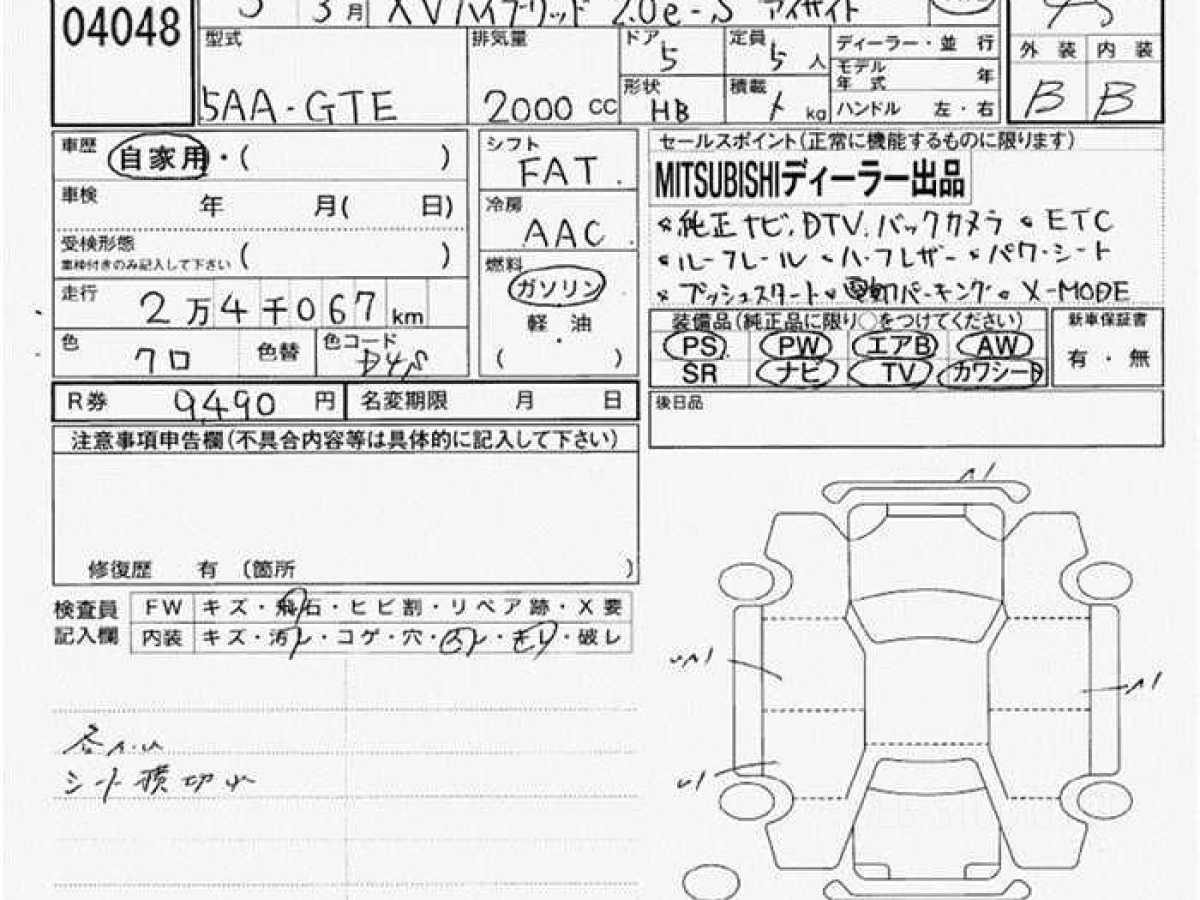 04048 3月 XVハイブリッド 2.0e-S アイサイト
型式 排気量 ドア 5 定員 5 人 ディーラー・並 行 外 装 内 装
モデル年式 年
5AA-GTE 2000 cc 形状 HB 積載 kg ハンドル 左・右 B B
車歴 自家用・( ) シフト FAT セールスポイント(正常に機能するものに限ります)
MITSUBISHIディーラー出品
車検 年 月( 日) 冷房 AAC 純正ナビ.DTV.バックカメラ ETC
受検形態 ( ) ルーフレール ハーフレザー パワーシート
車検付きのみ記入して下さい
燃料 ガソリン プッシュスタート 電動パーキング X-MODE
走行 2万4千067km 軽 油 装備品(純正品に限り○をつけてください) 新車保証書
色 クロ 色替 色コード D4S ( ) PS PW エアB AW 有・無
SR ナビ TV カワシート
R券 9490 円 名変期限 月 日 後日品
注意事項申告欄(不具合内容等は具体的に記入して下さい)
修復歴 有 (箇所 )
検査員 FW キズ・飛石・ヒビ割・リペア跡・X要
記入欄 内装 キズ・汚レ・コゲ・穴・・・破レ
シート